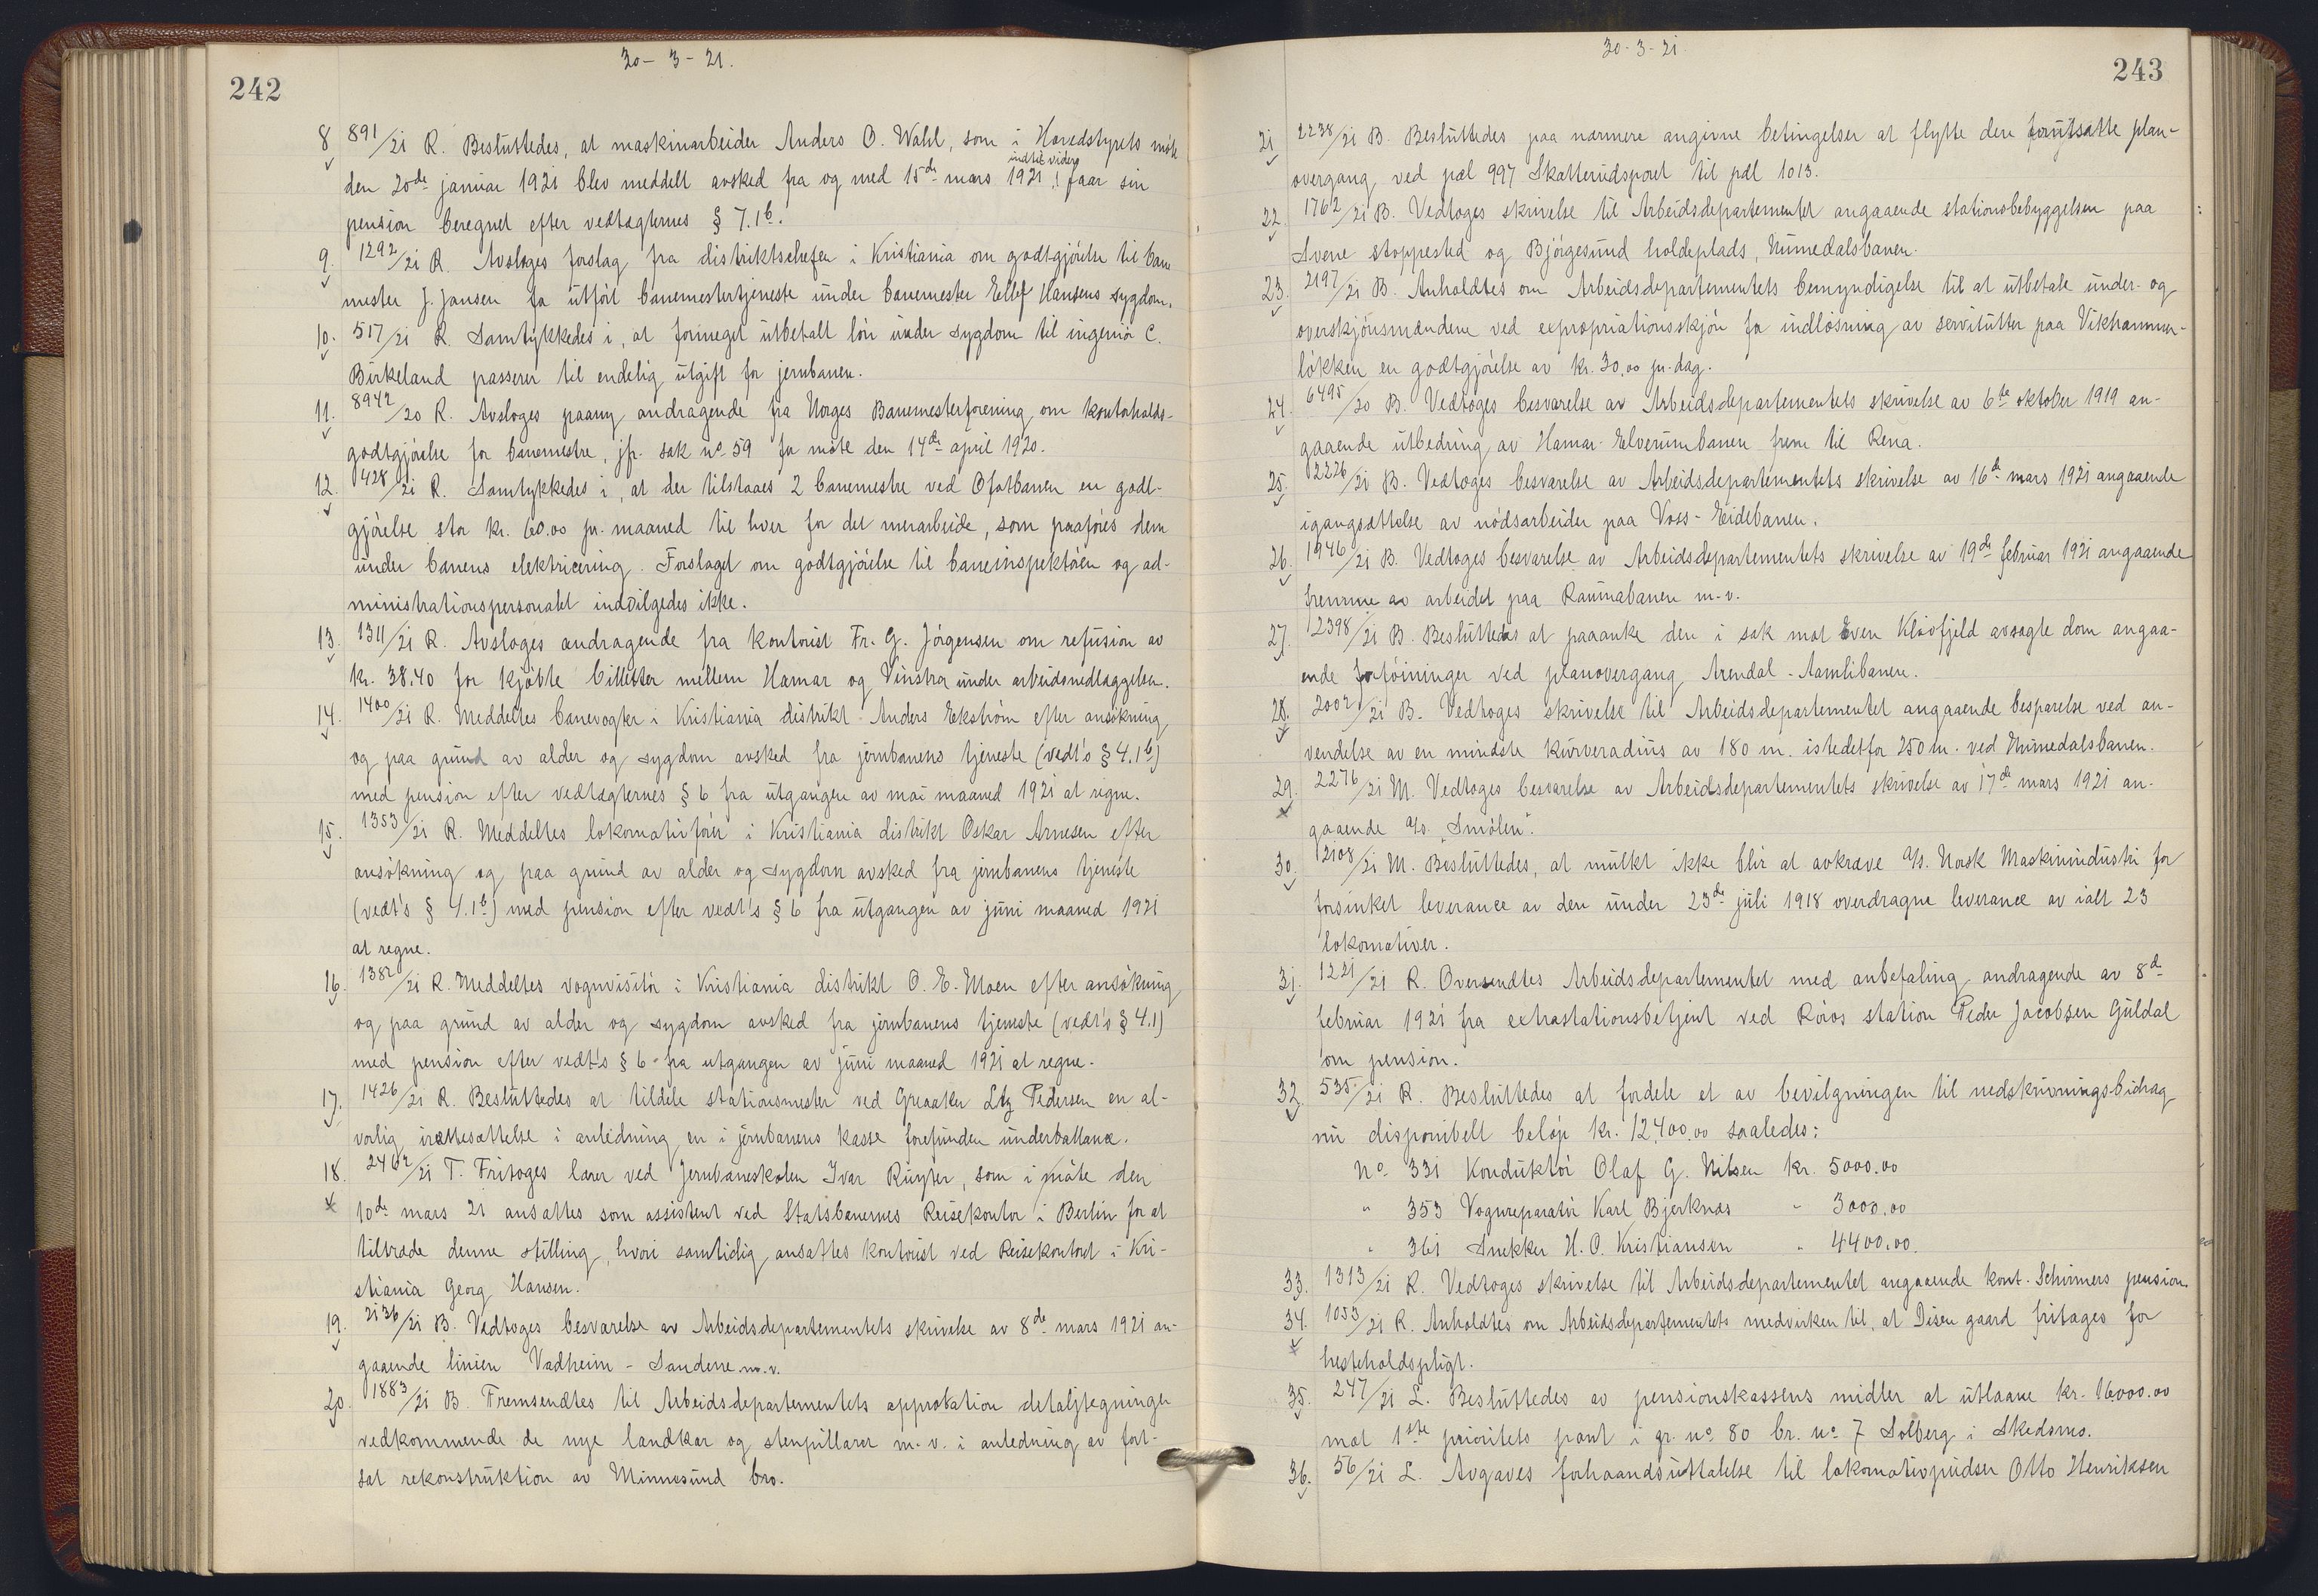 242
30-3-21.
8 891/21 R. Besluttedes, at maskinarbeider Anders O. Wahl, som i Hovedstyrets møte
den 20de januar 1921 blev meddelt avsked fra og med 15de mars 1921, indtil videre faar sin
pension beregnet efter vedtægternes § 7.1b.
9. 1292/21 R. Avsloges forslag fra distriktschefen i Kristiania om godtgjørelse til bane
mester J. Jansen for utført banemestertjeneste under banemester Ellef Hansens sygdom.
10. 517/21 R. Samtykkedes i, at formeget utbetalt løn under sygdom til ingeniør C.
Birkeland passerer til endelig utgift for jernbanen.
11. 8942/20 R. Avsloges paany andragende fra Norges Banemesterforening om kontorholds-
godtgjørelse for banemestre, jfr. sak no. 59 for møte den 14de april 1920.
12. 428/21 R. Samtykkedes i, at der tilstaaes 2 banemestre ved Ofotbanen en godt-
gjørelse stor kr. 60.00 pr. maaned til hver for det merarbeide, som paaføres dem
under banens elektricering. Forslaget om godtgjørelse til baneinspektøren og ad-
ministrationspersonalet indvilgedes ikke.
13. 1311/21 R. Avsloges andragende fra kontorist Fr. G. Jørgensen om refusion av
kr. 38.40 for kjøbte billetter mellem Hamar og Vinstra under arbeidsnedlæggelsen.
14. 1400/21 R. Meddeltes banevogter i Kristiania distrikt Anders Ekstrøm efter ansøkning
og paa grund av alder og sygdom avsked fra jernbanens tjeneste (vedt's § 4.1b)
med pension efter vedtægternes § 6 fra utgangen av mai maaned 1921 at regne.
15. 1353/21 R. Meddeltes lokomotivfører i Kristiania distrikt Oskar Arnesen efter
ansøkning og paa grund av alder og sygdom avsked fra jernbanens tjeneste
(vedt's § 4.1b) med pension efter vedt's § 6 fra utgangen av juni maaned 1921
at regne.
16. 1382/21 R. Meddeltes vognvisitør i Kristiania distrikt O. E. Moen efter ansøkning
og paa grund av alder og sygdom avsked fra jernbanens tjeneste (vedt's § 4.1)
med pension efter vedt's § 6 fra utgangen av juni maaned 1921 at regne.
17. 1426/21 R. Besluttedes at tildele stationsmester ved Greaaker Pedersen en al-
vorlig irettesættelse i anledning en i jernbanens kasse forefunden underballance.
18. 2462/21 T. Fritoges lærer ved Jernbaneskolen Ivar Ruyter, som i møte den
10de mars 21 ansattes som assistent ved Statsbanernes Reisekontor i Berlin for at
tiltræde denne stilling, hvori samtidig ansattes kontorist ved Reisekontoret i Kri-
stiania Georg Hansen.
19. 2136/21 B. Vedtoges besvarelse av Arbeidsdepartementets skrivelse av 8de mars 1921 an-
gaaende linien Vadheim - Sandene m.v.
20. 1883/21 B. Fremsendtes til Arbeidsdepartementets approbation detaljtegninger
vedkommende de nye landkar og stenpillarer m.v. i anledning av fort-
sat rekonstruktion av Minnesund bro.
30-3-21
243
21 2238/21 B. Besluttedes paa nærmere angivne betingelser at flytte den forutsatte plan-
overgang ved pæl 997 Skatterudsporet til pæl 1013.
22. 1762/21 B. Vedtoges skrivelse til Arbeidsdepartementet angaaende stationsbebyggelsen paa
Svene stoppested og Bjørgesund holdeplads, Numedalsbanen.
23. 2197/21 B. Anholdtes om Arbeidsdepartementets bemyndigelse til at utbetale under- og
overskjønsmændene ved expropriationsskjøn for indløsning av servitutter paa Vikhammer-
løkken en godtgjørelse av kr. 30.00 pr. dag.
24. 6495/20 B. Vedtoges besvarelse av Arbeidsdepartementets skrivelse av 6te oktober 1919 an-
gaaende utbedring av Hamar-Elverumbanen frem til Rena.
25. 2226/21 B. Vedtoges besvarelse av Arbeidsdepartementets skrivelse av 16de mars 1921 angaaende
igangsættelse av nødsarbeider paa Voss-Eidebanen.
26. 1946/21 B. Vedtoges besvarelse av Arbeidsdepartementets skrivelse av 19de februar 1921 angaaende
fremme av arbeidet paa Raumabanen m.v.
27. 2398/21 B. Besluttedes at paaanke den i sak mot Even Kløvfjeld avsagte dom angaa-
ende forføininger ved planovergang, Arendal-Aamlibanen.
28. 2002/21 B. Vedtoges skrivelse til Arbeidsdepartementet angaaende besparelse ved an-
vendelse av en mindste kurveradius av 180 m. istedetfor 250 m. ved Numedalsbanen.
29. 2276/21 M. Vedtoges besvarelse av Arbeidsdepartementets skrivelse av 17de mars 1921 an-
gaaende a/s. "Smølen".
30. 2108/21 M. Besluttedes, at mulkt ikke blir at avkræve a/s. Norsk Maskinindustri for
forsinket leverance av den under 23de juli 1918 overdragne leverance av ialt 23
lokomotiver.
31. 1221/21 R. Oversendtes Arbeidsdepartementet med anbefaling andragende av 8de
februar 1921 fra extrastationsbetjent ved Røros station Peder Jacobsen Guldal
om pension.
32. 535/21 R. Besluttedes at fordele et av bevilgningen til nedskrivningsbidrag
nu disponibelt beløp kr. 12400.00 saaledes:
No. 331 Konduktør Olaf G. Nilsen kr. 5000.00
" 353 Vognreparatør Karl Bjerknæs " 3000.00
" 361 Snekker H. O. Kristiansen " 4400.00.
33. 1313/21 R. Vedtoges skrivelse til Arbeidsdepartementet angaaende kont. Schirmers pension
34. 1053/21 R. Anholdtes om Arbeidsdepartementets medvirken til, at Disen gaard fritages for
hesteholdspligt.
35. 247/21 L. Besluttedes av pensionskassens midler at utlaane kr. 16000.00
mot 1ste prioritets pant i gr. no. 80 br. no. 7 Solberg i Skedsmo.
36. 56/21 L. Avgaves forhaandsuttalelse til lokomotivpudser Otto Henriksen